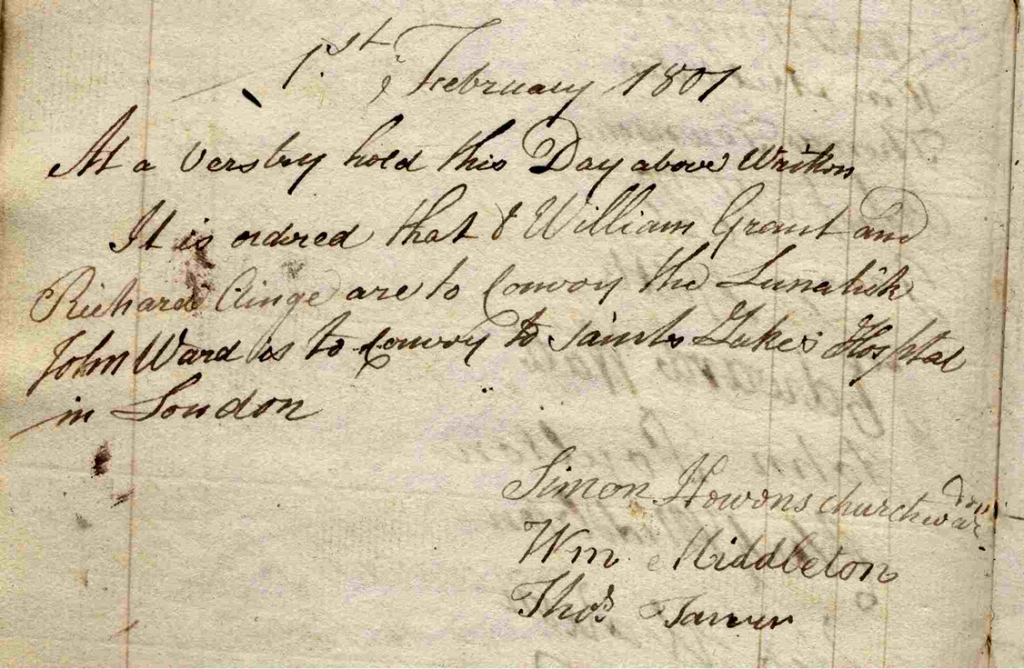 1.st February 1801
At a Versbry hold this Day above Writton
It is ordered that & William Grant and
Richard Clinge are to Convoy the Lunatick
John Ward is to Convoy to Saints Lukes Hosptal
in London
Simon Howons churchwar
den
Wm Middleton
Thos